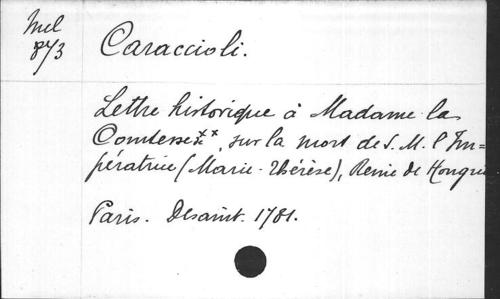 Mel
873
Caraccioli.
Lettre historique à Madame la
Comtesse***, sur la mort de S. M. l'Im=
pératrice (Marie-Thérèse), Reine de Hongrie
Paris. Desaint. 1781.